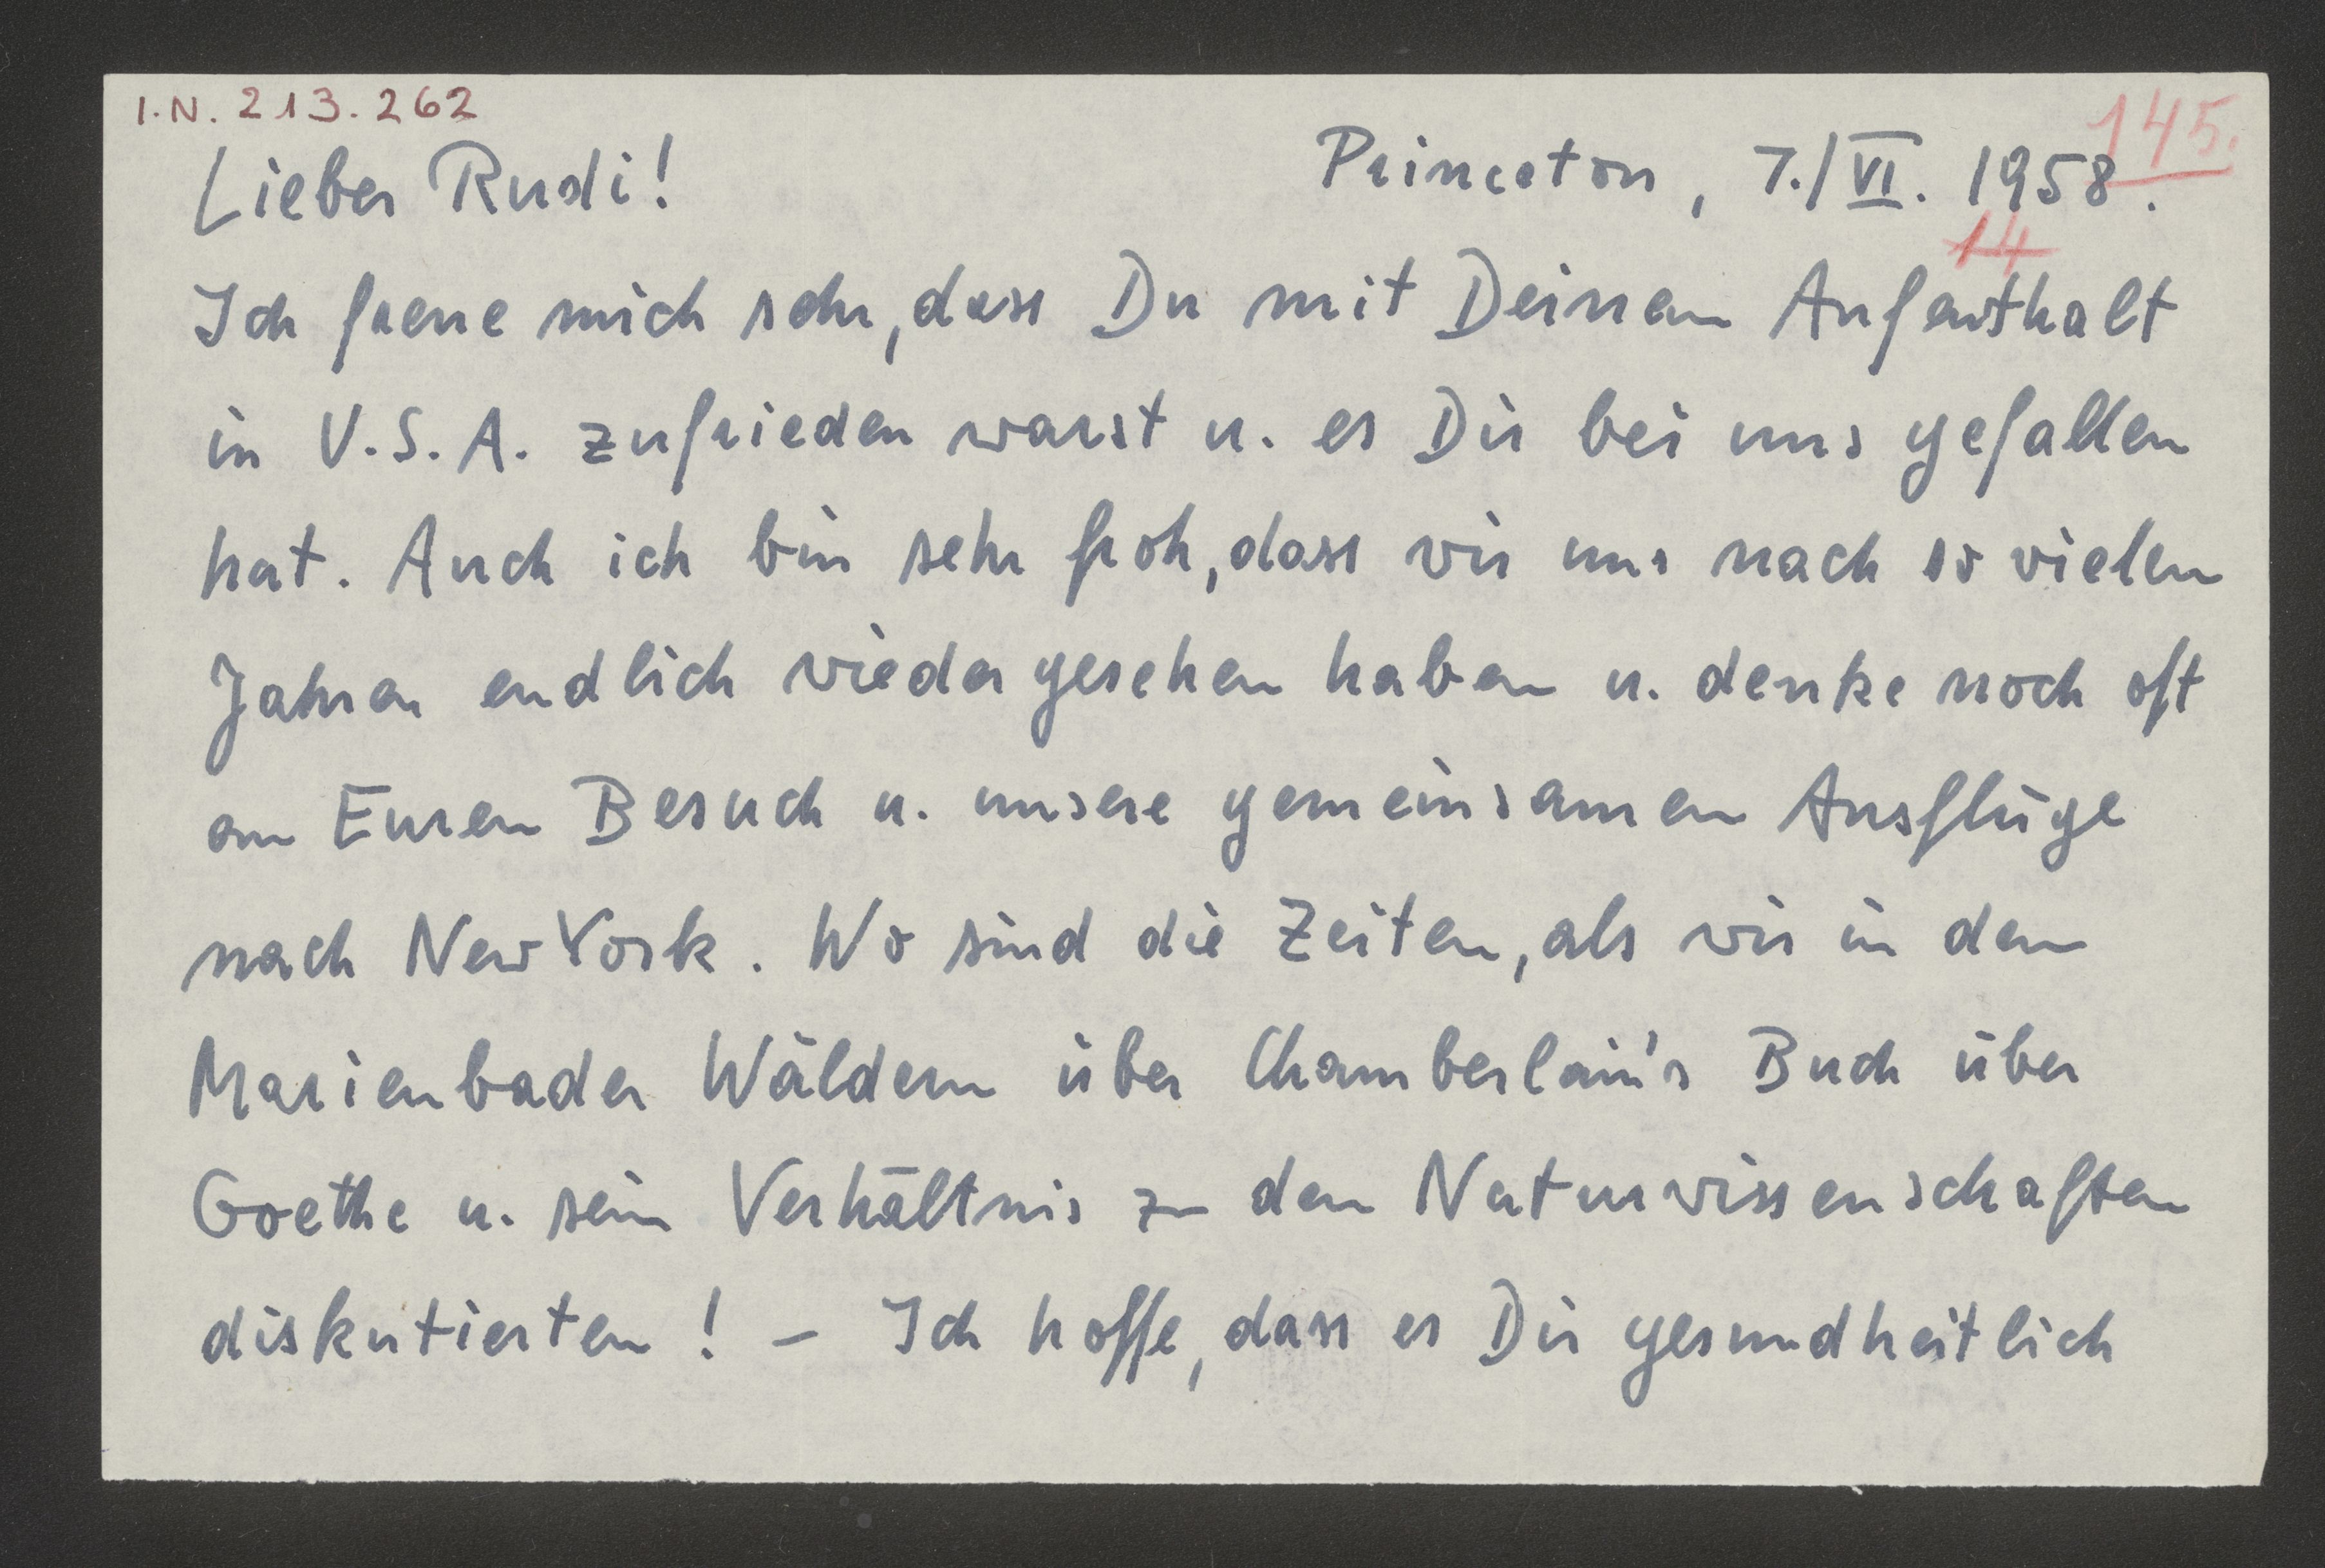 I.N. 213.262
145.
Lieber Rudi! Princeton, 7./VI. 1958.
14
Ich freue mich sehr, dass Du mit Deinem Aufenthalt
in U.S.A. zufrieden warst u. es Dir bei uns gefallen
hat. Auch ich bin sehr froh, dass wir uns nach so vielen
Jahren endlich wieder gesehen haben u. denke noch oft
an Euren Besuch u. unsere gemeinsamen Ausflüge
nach New York. Wo sind die Zeiten, als wir in den
Marienbader Wäldern über Chamberlain's Buch über
Goethe u. sein Verhältnis zu den Naturwissenschaften
diskutierten! – Ich hoffe, dass es Dir gesundheitlich